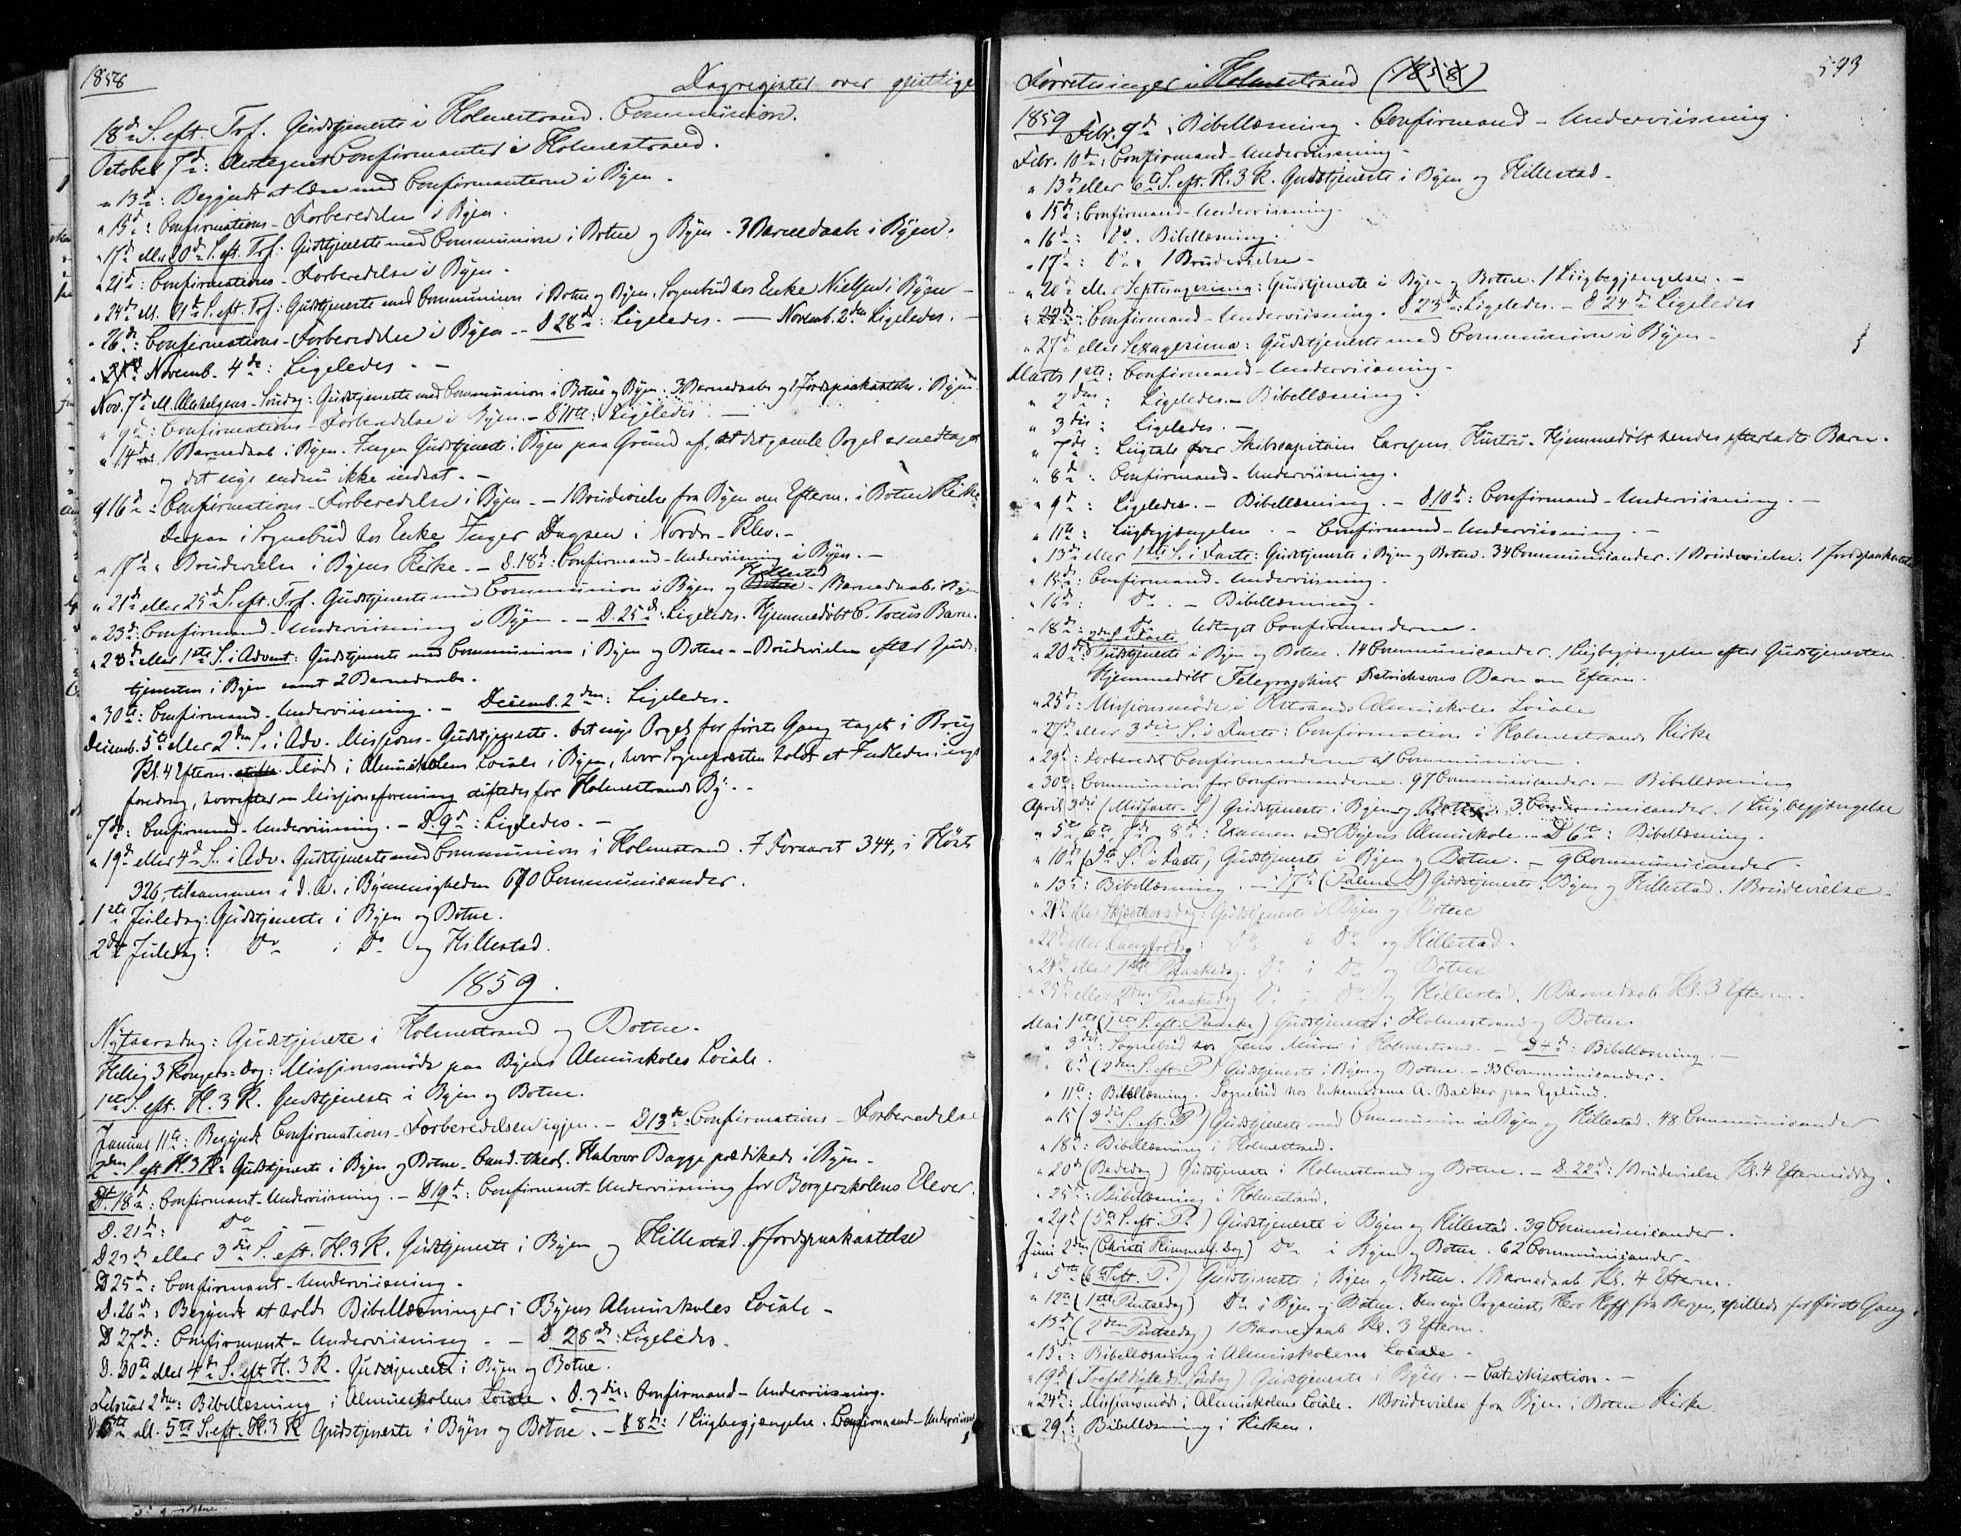 1858
Dagregister over geistlige
18de S. eft. Tref. Gudstjeneste i Holmestrand. Communion.
October 7de: Antegnet Confirmanter i Holmestrand.
" 13de: Begyndt at læse med Confirmanterne i Byen.
" 15de: Confirmations-Forberedelse i Byen.
" 17de ell. 20de S. eft. Tref: Gudstjeneste med Communion i Botne og Byen. 3 Barnedaab i Byen.
" 21de: Confirmations-Forberedelse i Byen.
" 24de ell. 21te S. eft. Tref: Gudstjeneste med Communion i Botne og Byen. Sognebud hos Enke Nielsen i Byen.
" 26de: Confirmations-Forberedelse i Byen. - D 28de: Ligeledes. - Novemb. 2den Ligeledes.
Novemb. 4de: Ligeledes. -
Nov. 7de ell. Allehelgens-Søndag: Gudstjeneste med Communion i Botne og Byen. 3 Barnedaab og 1 Jordpaakastelse i Byen.
" 9de: Confirmations-Forberedelse i Byen. - D 11te: Ligeledes. -
" 14de: Barnedaab i Byen. Ingen Gudstjeneste i Byen paa Grund af, at det gamle Orgel er nedtaget
og det nye endnu ikke indsat. -
" 16de: Confirmations-Forberedelse i Byen. - 1 Brudevielse fra Byen om Efterm. i Botne Kirke
Derpaa i Sognebud hos Enke Inger Dagsen i Nordre Klev. -
" 17de " Brudevielse i Byens Kirke. - D. 18de: Confirmand-Underviisning i Byen. -
" 21de eller 25de S. eft. Tref. Gudstjeneste med Communion i Byen og Botne Hillestad. 1 Barnedaab i Byen
" 23de: Confirmand-Underviisning i Byen. - D. 25de: Ligeledes. Hjemmedøbt C. Barn.
" 28de eller 1ste S. i Advent: Gudstjeneste med Communion i Byen og Botne. - Brudevielse efter Guds-
tjenesten i Byen samt 2 Barnedaabe.
" 30te: Confirmand-Underviisning. - Decemb. 2den: Ligeledes.
Decemb. 5te eller 2den S. i Adv. Missions-Gudstjeneste. Det nye Orgel for første Gang taget i Brug
Kl. 4 Efterm. Møde i Almueskolens Locale i Byen, hvor Sognepræsten holdt et Indlednings-
foredrag, hvorefter en Missionsforening stiftedes for Holmestrands By. -
" 7de: Confirmand-Underviisning. - D. 9de: Ligeledes. -
" 19de eller 4de S. i Adv. Gudstjeneste med Communion i Holmestrand. I Foraaret 344, i Høst
326, tilsammen i d. A. i Bymenigheden 670 Communicander.
1ste Juledag: Gudstjeneste i Byen og Botne.
2den Juledag: Do i Do og Hillestad.
1859.
Nytaarsdag: Gudstjeneste i Holmestrand og Botne.
Hellig 3 Kongers-Dag: Missionsmøde paa Byens Almueskoles Locale.
1ste S. eft. H. 3 K. Gudstjeneste i Byen og Botne.
Januar 11te: Begyndt Confirmations-Forberedelsen igjen. - D 13de: Confirmations-Forberedelse
2den S. eft. H. 3 K: Gudstjeneste i Byen og Botne. Cand. theol. Halvor Bagge prædikede i Byen. -
D. 18de: Confirmant-Underviisning. - D 19de: Confirmant-Underviisning for Borgerskolens Elever.
D. 21de: Do -
D 23de eller 3die S. eft. H. 3 K. Gudstjeneste i Byen og Hillestad. 1 Jordpaakastelse
D 25de: Confirmant-Underviisning.
D. 26de: Begyndt at holde Bibellæsninger i Byens Almueskoles Locale -
D 27de: Confirmant-Underviisning. - D. 28de: Ligeledes.
D. 30te eller 4de S. eft H. 3 K. Gudstjeneste i Byen og Botne.
Februar 2den: Bibellæsning i Almueskolens Locale. D. 3die: Confirmand-Underviisning.
D 6te ell. 5te S. eft. H. 3 K Gudstjeneste i Byen og Botne. - D 8de: 1 Liigbegjængelse. Confirmand-Underviisning
Forretninger i Holmestrand (1858)
593
1859
Febr. 9de Bibellæsning. Confirmand-Underviisning.
Febr. 10de: Confirmand-Underviisning.
" 13de eller 6te S. eft. H. 3 K. Gudstjeneste i Byen og Hillestad.
" 15de: Confirmand-Underviisning.
" 16de: Do. Bibellæsning.
" 17de: Do. 1 Brudevielse.
" 20de eller Septuagesima: Gudstjeneste i Byen og Botne. 1 Liigbegjængelse. -
" 22de: Confirmand-Underviisning. D 23de: Ligeledes. - D 24de Ligeledes
" 27de eller Sexagesima: Gudstjeneste med Communion i Byen.
Marts 1ste: Confirmand-Underviisning.
" 2den: Ligeledes. - Bibellæsning.
" 3die: Ligeledes. -
" 7de: Liigtale over Skibscapitain Larsens Hustru. Hjemmedøbt hendes efterladte Barn.
" 8de: Confirmand-Underviisning.
" 9de: Ligeledes. - Bibellæsning. - D 10de: Confirmand-Underviisning. -
" 11te: Liigbegjængelse. - Confirmand-Underviisning. -
" 13de eller 1ste S. i Faste: Gudstjeneste i Byen og Botne. 34 Communicander. 1 Brudevielse. 1 Jordpaakastelse
" 15de: Confirmand-Underviisning.
" 16de: Do. - Bibellæsning.
" 18de: Do. Udtaget Confirmanderne.
2den S. i Faste
" 20de: Gudstjeneste i Byen og Botne. 14 Communicander. 1 Liigbegjængelse efter Gudstjenesten.
Hjemmedøbt Telegraphist Dietrichsons Barn om Efterm.
" 25de: Missionsmøde i Almueskoles Locale
" 27de eller 3die S. i Faste: Confirmation i Holmestrands Kirke
" 29de: Forberedt Confirmanderne til Communion.
" 30te: Communion for Confirmanderne. 97 Communicander. - Bibellæsning
April 3die (Midfaste-S.) Gudstjeneste i Byen og Botne. 3 Communicander. 1 Liigbegjængelse
" 5te, 6te, 7de, 8de: Examen ved Byens Almueskole. - D 6te: Bibellæsning.
" 10de (5te S. i Faste) Gudstjeneste i Byen og Botne. - 9 Communicander.
" 13de: Bibellæsning. - 17de (Palme-S) Gudstjeneste i Byen og Hillestad. 1 Brudevielse.
" 21de eller Skjærthorsdag: Gudstjeneste i Byen og Botne
" 22de eller Langfredag: Do i Do og Hillestad.
" 24de eller 1ste Paaskedag. Do i Do og Botne
" 25de eller 2den Paaskedag Do i Do og Hillestad. 1 Barnedaab Kl. 3 Efterm.
Mai 1ste (1ste S. eft. Paaske) Gudstjeneste i Holmestrand og Botne.
" 3die: Sognebud hos Jens Murer i Holmestrand. - D 4de: Bibellæsning. -
" 8de (2den S. eft. P.) Gudstjeneste i Byen og Botne. - 33 Communicander.
" 11te: Bibellæsning. Sognebud hos Enkemadame A. Backer paa Egelund.
" 15 (3die S. eft. P) Gudstjeneste med Communion i Byen og Hillestad. 48 Communicander
" 18de: Bibellæsning i Holmestrand.
" 20de (Bededag) Gudstjeneste i Holmestrand og Botne. - D. 22de: 1 Brudevielse Kl. 4 Eftermiddag.
" 25de: Bibellæsning i Holmestrand.
" 29de (5te S. eft. P.) Gudstjeneste i Byen og Hillestad. 39 Communicander.
Juni 2den (Christi Himmelf. Dag) Do i Byen og Botne. 62 Communicander.
" 5te (6te S. eft. P.) Gudstjeneste i Byen og Botne. 1 Barnedaab Kl. 4 Efterm.
" 12te (1ste Pintsedag) Do i Byen og Botne. Den nye Organist, Herr Hoff fra Bergen, spillede for første Gang.
" 13de (2den Pintsedag) 1 Barnedaab Kl. 3 Efterm.
" 15de: Bibellæsning i Almueskolens Locale.
" 19de (Trefoldigheds Søndag) Gudstjeneste i Byen. - Catechisation. -
" 24de: Missionsmøde i Almueskolens Locale. 1 Brudevielse fra Byen i Botne Kirke
" 29de: Bibellæsning i Kirken.